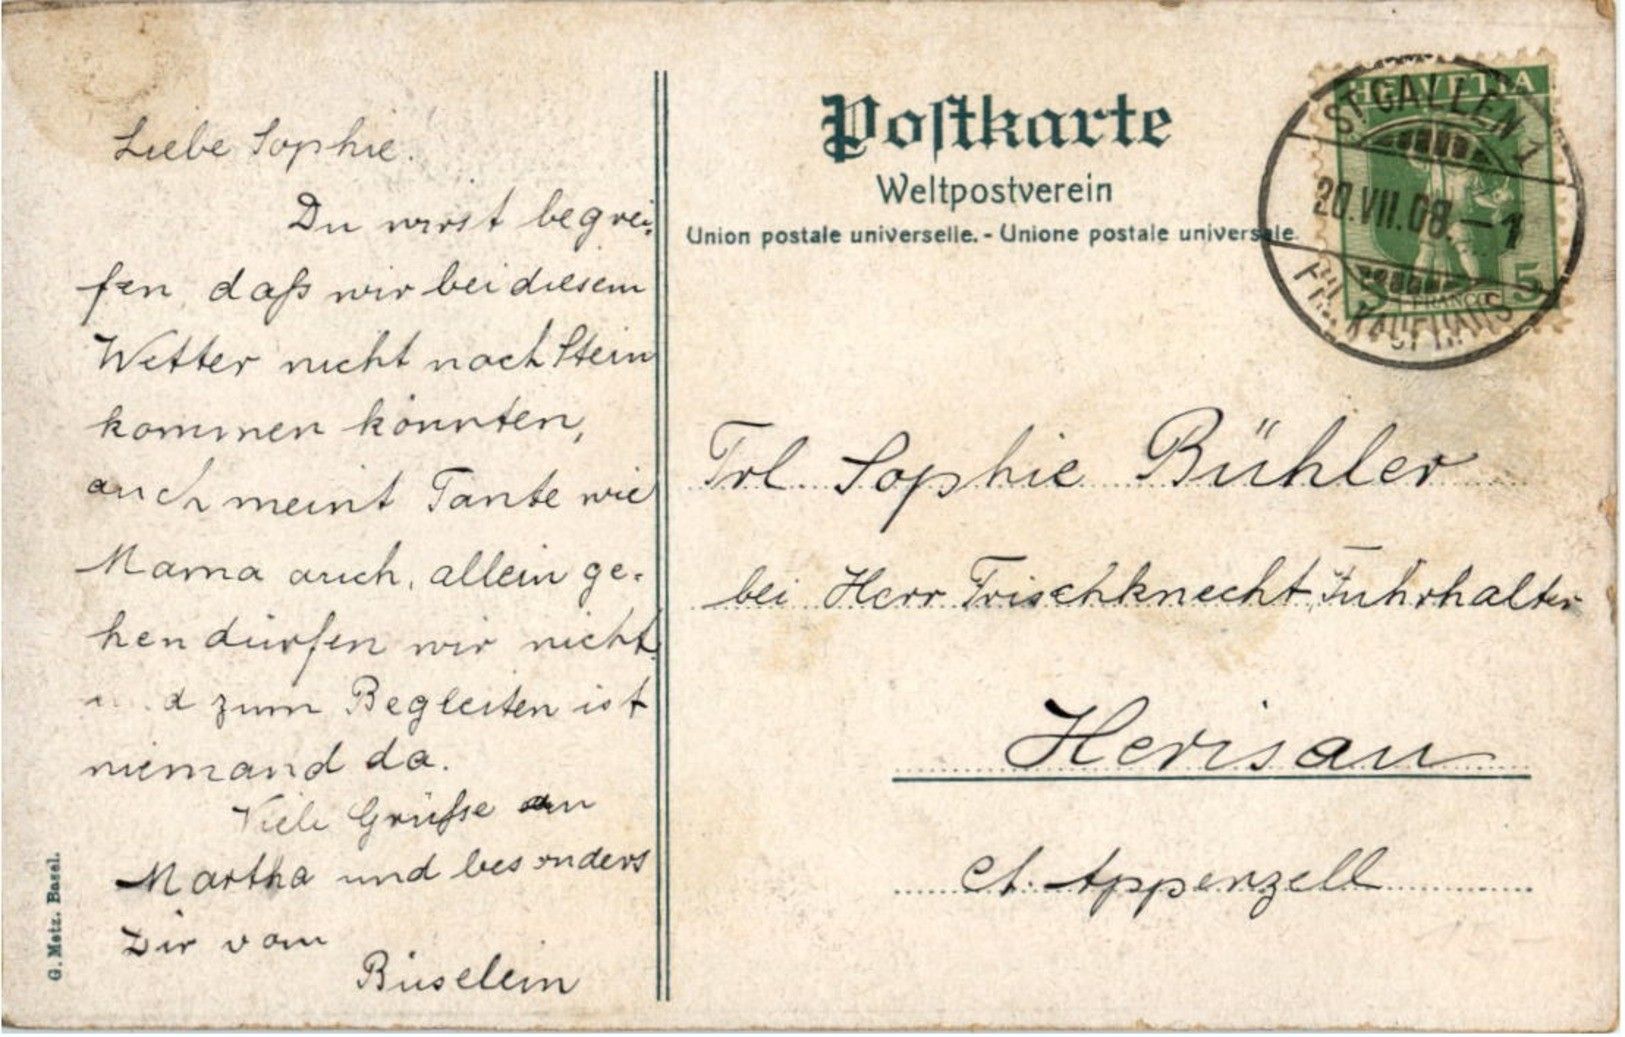 Liebe Sophie!
Du wirst begrei-
fen, daß wir bei diesem
Wetter nicht nach Stein
kommen könnten,
auch meint Tante wie
Mama auch, allein ge-
hen dürfen wir nicht
und zum Begleiten ist
niemand da.
Viele Grüße an
Martha und besonders
Dir vom
Büselein
G. Metz. Basel.
Postkarte
Weltpostverein
Union postale universelle. - Unione postale universale
HELVETIA
FRANCO 5
ST. GALLEN 1
20.VII.08.–1
KAUFHAUS
Frl. Sophie Bühler
bei Herr Frischknecht, Fuhrhalter
Herisau
Ct. Appenzell